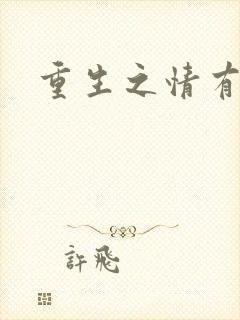 重生之情有
許飛